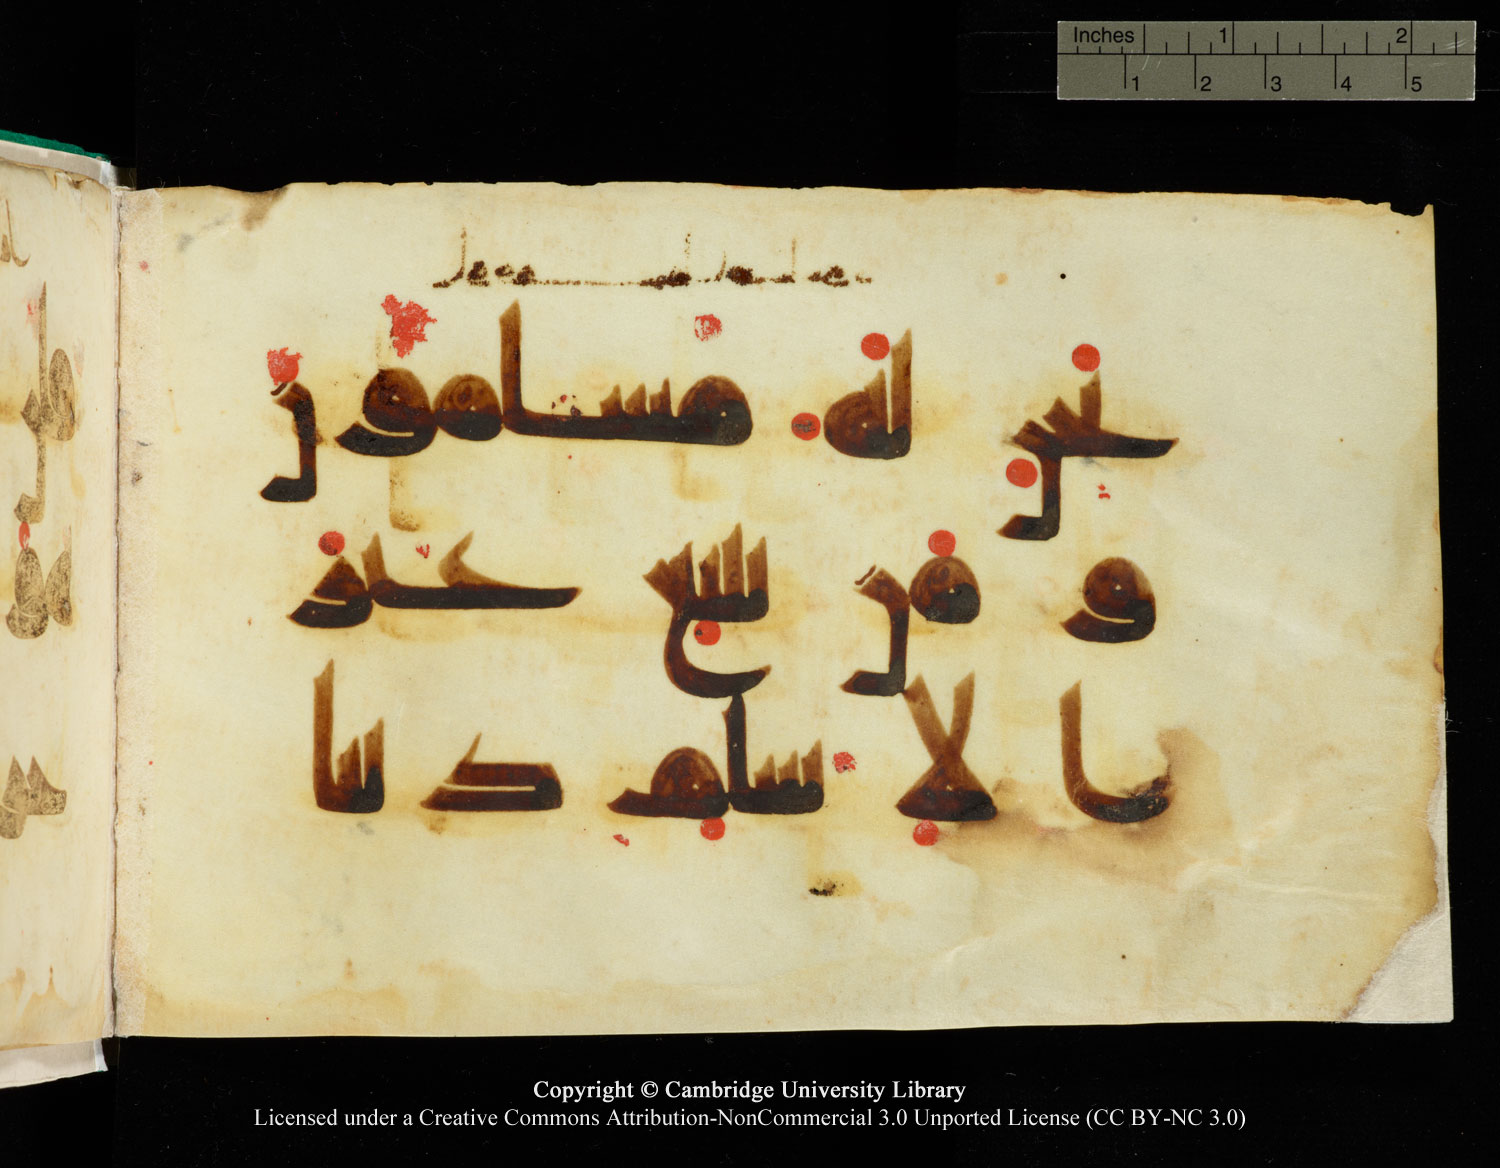 Inches 1 2
1 2 3 4 5
نحن له مسلمون
و من يبتغ غير
ا لا سلم د ينا
Copyright © Cambridge University Library
Licensed under a Creative Commons Attribution-NonCommercial 3.0 Unported License (CC BY-NC 3.0)